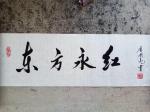 东方永红